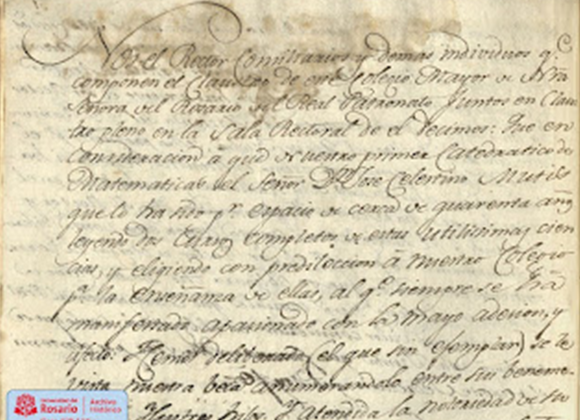 Nos el Rector Consiliarios y demas individuos q.e
componen el Claustro de este Colegio Mayor de Ntra
Señora del Rosario del Real Patronato Juntos en Claus
tro pleno en la Sala Rectoral de el decimos: Que en
consideracion a que nuestro primer Catedratico de
Matematicas el Señor D.r D.n Jose Celestino Mutis
que lo ha sido p.r espacio de cerca de quarenta años
leyendo dos Cursos completos de estas utilissimas cien
cias, y eligiendo con predileccion a nuestro Colegio
p.a la enseñanza de ellas, al q.e siempre se ha
manifestado apasionado con la mayor adesion, y
afecto: Hemos deliberado (el que sin exemplar) se le
vista nuestra beca enumerandolo entre sus beneme-
atenta la notoriedad de su
Universidad del
Rosario
Archivo
Histórico